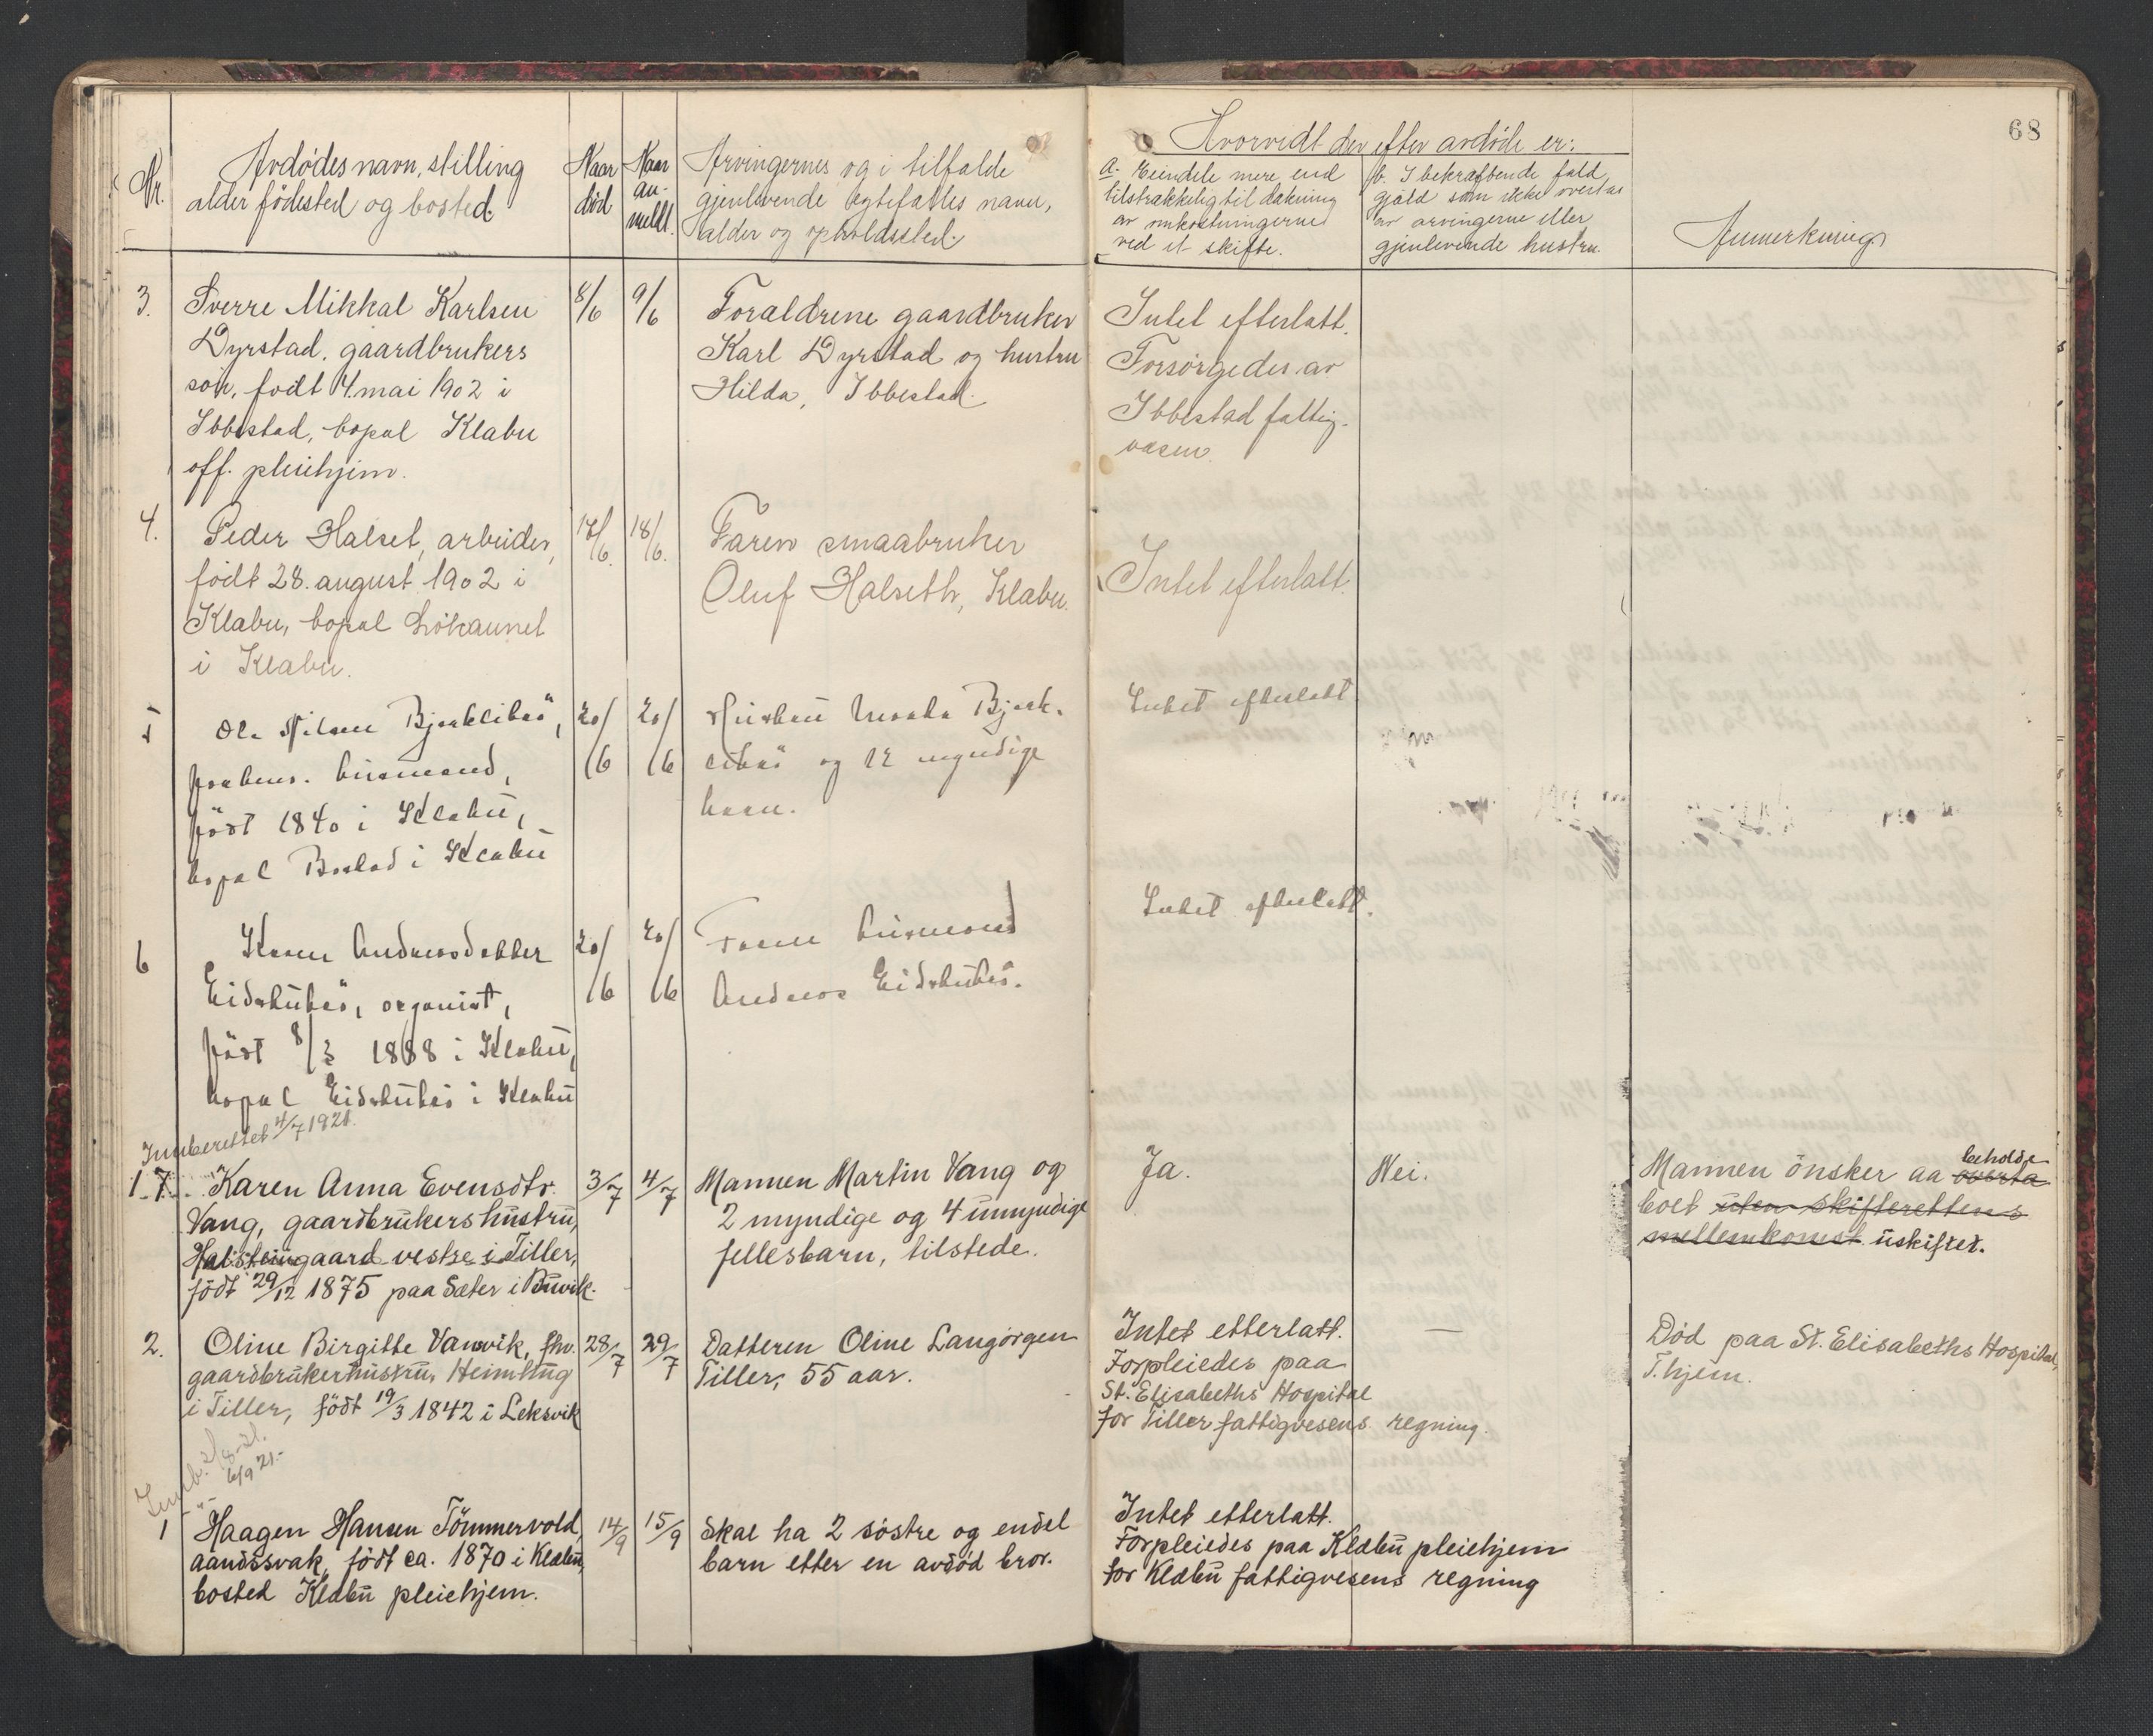 68
Nr.
Avdødes navn, stilling
alder fødested og bosted.
Naar
død
Naar
an-
meldt.
Arvingernes og i tilfælde
gjenlevende ægtefælles navn,
alder og opholdssted.
Hvorvidt der efter avdøde er:
a. Eiendele mere end
tilstrækkelig til dækning
av omkostningerne
ved et skifte.
b. I bekræftende fald
gjæld som ikke overtas
av arvingerne eller
gjenlevende hustru.
Anmerkning
3.
Sverre Mikkal Karlsen
Dyrstad, gaardbrukers
søn, født 4. mai 1902 i
Ibbestad, bopæl Klæbu
off. pleiehjem.
8/6
9/6
Forældrene gaardbruker
Karl Dyrstad og hustru
Hilda, Ibbestad.
Intet efterlatt.
Forsørgedes av
Ibbestad fattig-
væsen.
4.
Peder Halset, arbeider,
født 28. august 1902 i
Klæbu, bopæl Løkaunet
i Klæbu.
17/6.
18/6.
Faren smaabruker
Oluf Halseth, Klæbu.
Intet efterlatt.
5
Ole Nilsen Bjørklikås,
forhenv. husmand,
født 1840 i Klæbu,
bopæl Bostad i Klæbu
20/6
20/6
Hustru Marta Bjørk-
likås og 12 myndige
barn.
Intet efterlatt
6
Karen Andreasdatter
Eidstubås, organist,
født 8/3 1888 i Klæbu,
bopæl Eidstubås i Klæbu
20/6
20/6
Faren husmand
Andreas Eidstubås.
Intet efterlatt.
Innberettet 4/7 1921.
1 7.
Karen Anna Evensdtr.
Vang, gaardbrukershustru,
Halsteingaard vestre i Tiller,
født 29/12 1875 paa Sæter i Buvik.
3/7
4/7
Mannen Martin Vang og
2 myndige og 4 umyndige
fellesbarn, tilstede.
Ja.
Nei.
beholde
Mannen ønsker aa overta
boet uten skifterettens
mellemkomst uskiftet.
2.
Oline Birgitte Vanvik, fhv.
gaardbrukerhustru, Heimhug
i Tiller, født 19/3 1842 i Leksvik
28/7
29/7
Datteren Oline Langørgen
Tiller, 55 aar.
Intet etterlatt.
Forpleiedes paa
St. Elisabeths Hospital
for Tiller fattigvesens regning.
—
Død paa St. Elisabeths Hospital,
T.hjem.
Innb. 2/8 21.
-"- 6/9 21.-
1
Haagen Hansen Tømmervold,
aandssvak, født ca. 1870 i Klæbu,
bosted Klæbu pleiehjem.
14/9
15/9
Skal ha 2 søstre og endel
barn etter en avdød bror.
Intet etterlatt.
Forpleiedes paa Klæbu pleiehjem
for Klæbu fattigvesens regning